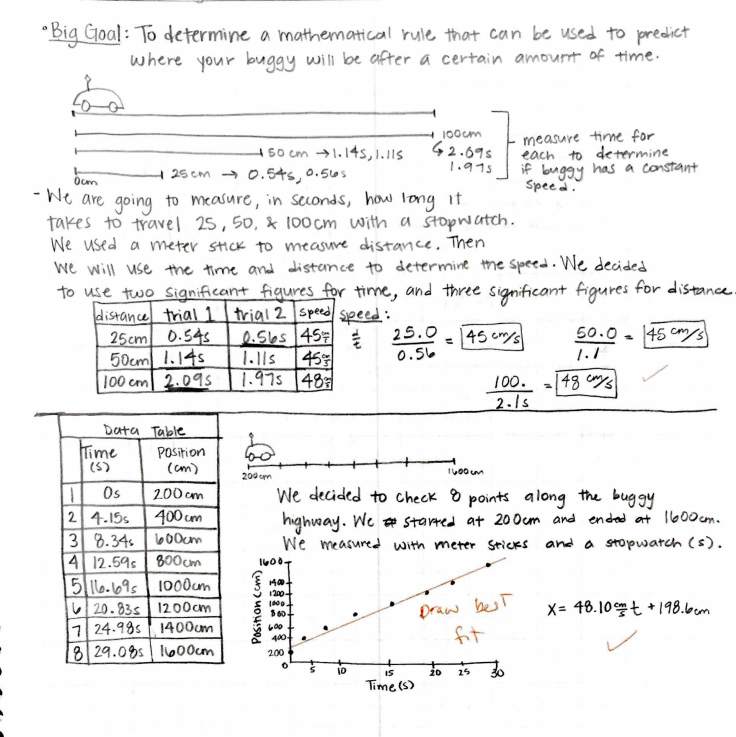 •Big Goal: To determine a mathematical rule that can be used to predict
where your buggy will be after a certain amount of time.
100cm
50cm → 1.14s, 1.11s
↳ 2.09s
1.97s
25cm → 0.54s, 0.56s
0cm
measure time for
each to determine
if buggy has a constant
speed.
- We are going to measure, in seconds, how long it
takes to travel 25, 50, & 100cm with a stopwatch.
We used a meter stick to measure distance. Then
we will use the time and distance to determine the speed. We decided
to use two significant figures for time, and three significant figures for distance.
distance trial 1 trial 2 speed
25cm 0.54s 0.56s 45 cm/s
50cm 1.14s 1.11s 45 cm/s
100cm 2.09s 1.97s 48 cm/s
speed:
d/t 25.0/0.56 = 45 cm/s 50.0/1.1 = 45 cm/s
100./2.1s = 48 cm/s ✓
Data Table
Time (s) Position (cm)
1 0s 200cm
2 4.15s 400cm
3 8.34s 600cm
4 12.59s 800cm
5 16.69s 1000cm
6 20.83s 1200cm
7 24.98s 1400cm
8 29.08s 1600cm
200cm 1600cm
We decided to check 8 points along the buggy
highway. We started at 200cm and ended at 1600cm.
We measured with meter sticks and a stopwatch (s).
Position (cm)
1600
1400
1200
1000
800
600
400
200
0 5 10 15 20 25 30
Time (s)
Draw best
fit
x = 48.10 cm/s t + 198.6cm
✓